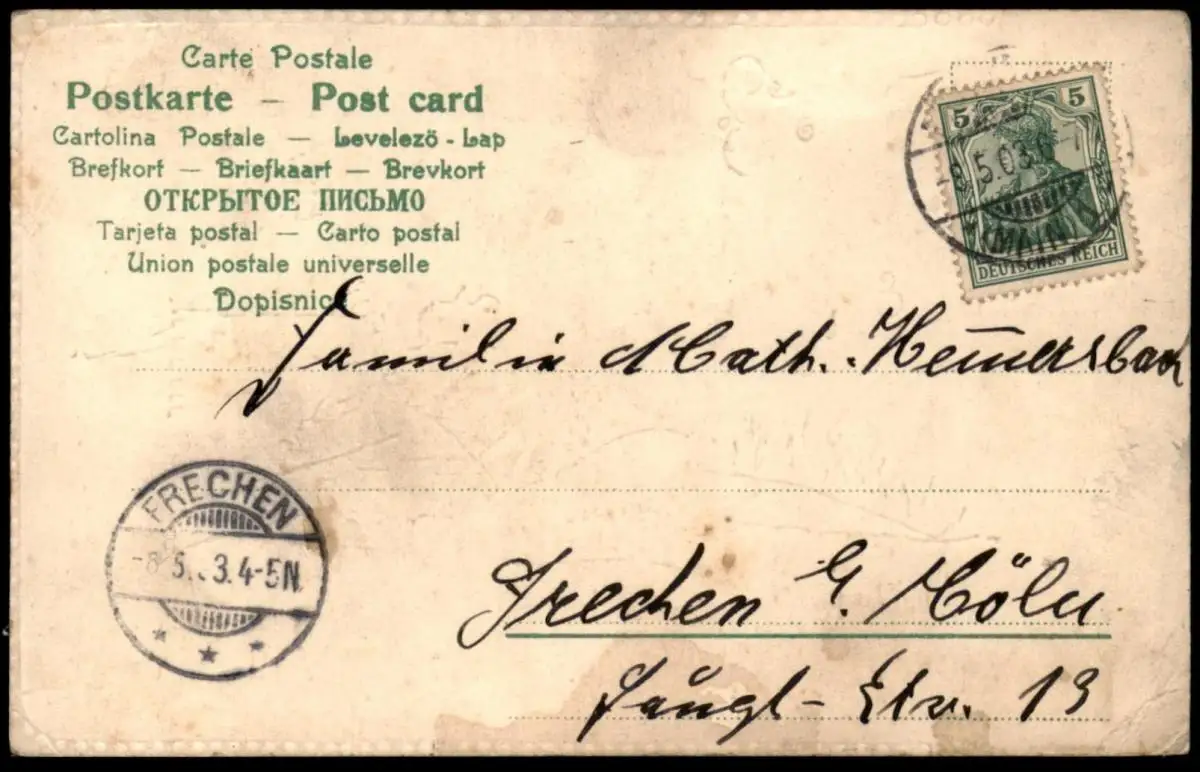 Carte Postale
Postkarte — Post card
Cartolina Postale — Levelezö-Lap
Brefkort — Briefkaart — Brevkort
ОТКРЫТОЕ ПИСЬМО
Tarjeta postal — Carto postal
Union postale universelle
Dopisnice
5 5
8.5.03.6-7
(MAIN)
DEUTSCHES REICH
Familie Math. Hemmersbach
FRECHEN
-8.5.3.4-5N.
Frechen b. Cöln
13